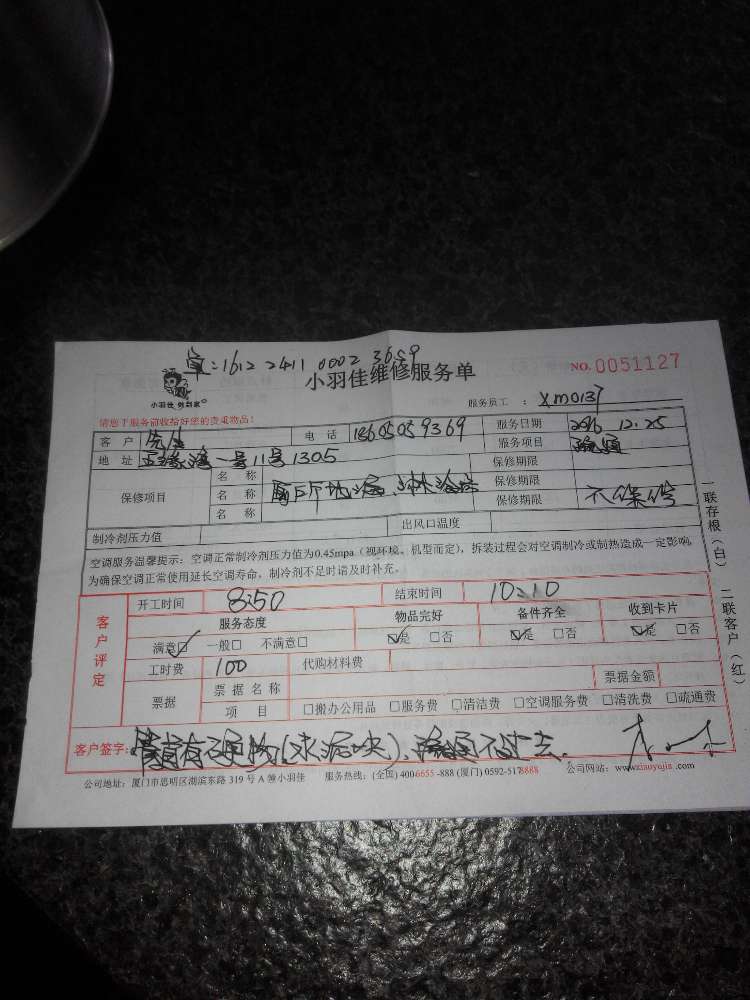 单:1612 2411 0002 3659
小羽佳维修服务单
NO. 0051127
小羽佳 做到家
服务员工 : XM0137
请您于服务前收拾好您的贵重物品!
客户 先生 电话 13605059369 服务日期 2016.12.25
地址 一号11号1305 服务项目 疏通
保修项目 名称 保修期限
名称 保修期限
名称 保修期限 不保修
制冷剂压力值 出风口温度
空调服务温馨提示:空调正常制冷剂压力值为0.45mpa(视环境、机型而定),拆装过程会对空调制冷或制热造成一定影响,
为确保空调正常使用延长空调寿命,制冷剂不足时请及时补充。
客户评定
开工时间 8:50 结束时间 10:10
服务态度 物品完好 备件齐全 收到卡片
满意☑ 一般□ 不满意□ ☑是 □否 ☑是 □否 ☑是 □否
工时费 100 代购材料费
票据 票据名称 票据金额
项目 □搬办公用品 □服务费 □清洁费 □空调服务费 □清洗费 □疏通费
客户签字: 管道有硬物(水泥块)、疏通不过去.
公司地址:厦门市思明区湖滨东路 319 号 A 幢小羽佳 服务热线:(全国) 400-6655-888 (厦门) 0592-5178888 公司网站:www.xiaoyujia.com
一联存根(白) 二联客户(红)